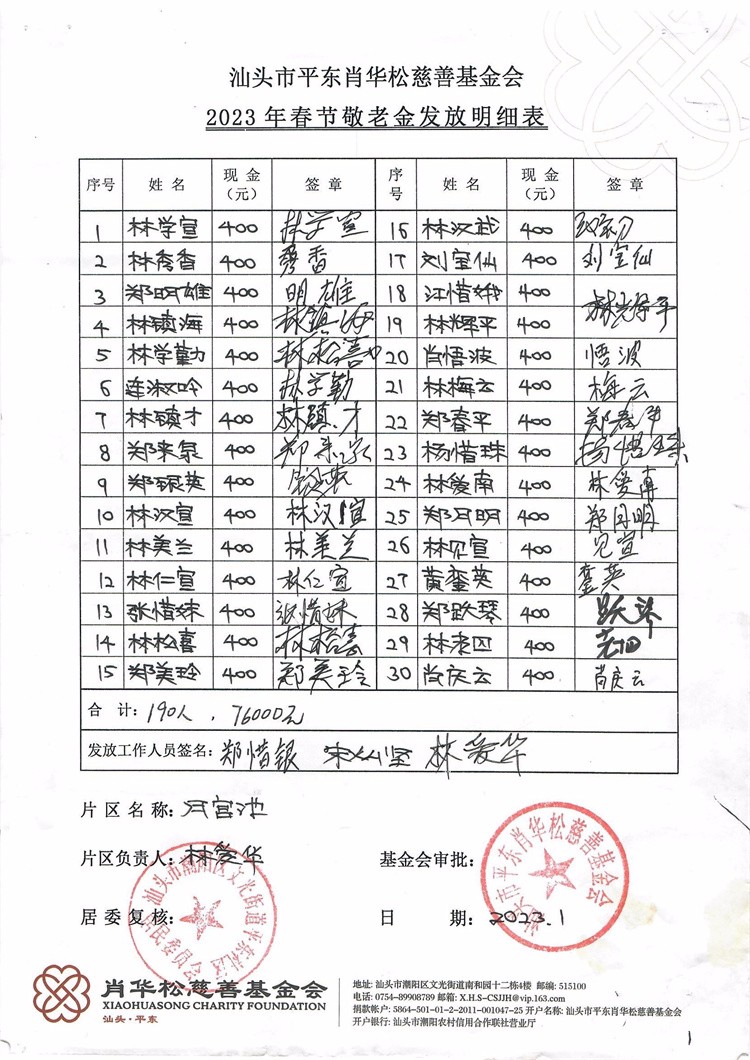 汕头市平东肖华松慈善基金会
2023年春节敬老金发放明细表
序号 姓名 现金（元） 签章 序号 姓名 现金（元） 签章
1 林学宣 400 林学宣 16 林汉武 400
2 林秀香 400 秀香 17 刘宝仙 400 刘宝仙
3 郑明雄 400 明雄 18 江惜娥 400
4 林镇海 400 林镇海 19 林辉平 400
5 林学勤 400 林松喜 20 肖悟波 400 悟波
6 连淑吟 400 林学勤 21 林梅云 400 梅云
7 林镇才 400 林镇才 22 郑春平 400 郑春平
8 郑来泉 400 郑来泉 23 杨惜珠 400 杨惜珠
9 郑银英 400 银英 24 林爱南 400 林爱南
10 林汉宣 400 林汉宣 25 郑月明 400 郑月明
11 林美兰 400 林美兰 26 林见宣 400 见宣
12 林仁宣 400 林仁宣 27 黄銮英 400 銮英
13 张惜妹 400 张惜妹 28 郑跃琴 400 跃琴
14 林松喜 400 林松喜 29 林老四 400 老四
15 郑美玲 400 郑美玲 30 肖庆云 400 肖庆云
合 计：190人，76000元
发放工作人员签名：郑惜银 林爱华
片区名称：月宫池
片区负责人：林爱华 基金会审批：
居委复核： 日 期：2023.1
汕头市平东肖华松慈善基金会
汕头市潮阳区文光街道平东社区居民委员会
肖华松慈善基金会
XIAOHUASONG CHARITY FOUNDATION
汕头·平东
地址：汕头市潮阳区文光街道南和园十二栋4楼 邮编：515100
电话：0754-89908789 邮箱：X.H.S-CSJJH@vip.163.com
捐款帐户：5864-501-01-2-2011-001047-25 开户名称：汕头市平东肖华松慈善基金会
开户银行：汕头市潮阳农村信用合作联社营业厅
1